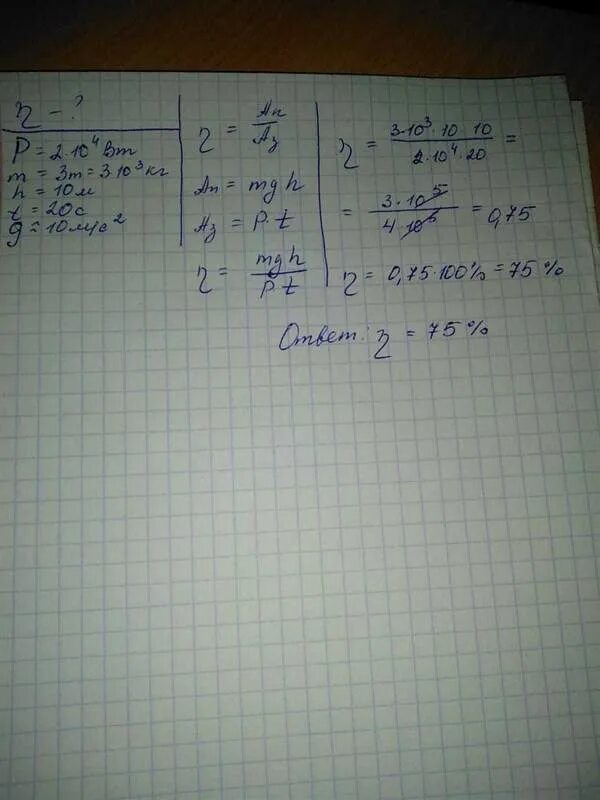 η - ?
P = 2·10⁴ Вт
m = 3т = 3·10³ кг
h = 10м
t = 20с
g ≈ 10м/с²
η = Aп/Aз
Aп = mgh
Aз = P·t
η = mgh/Pt
η = 3·10³·10·10/2·10⁴·20 =
= 3·10⁵/4·10⁵ = 0,75
η = 0,75·100% = 75%
Ответ: η = 75%